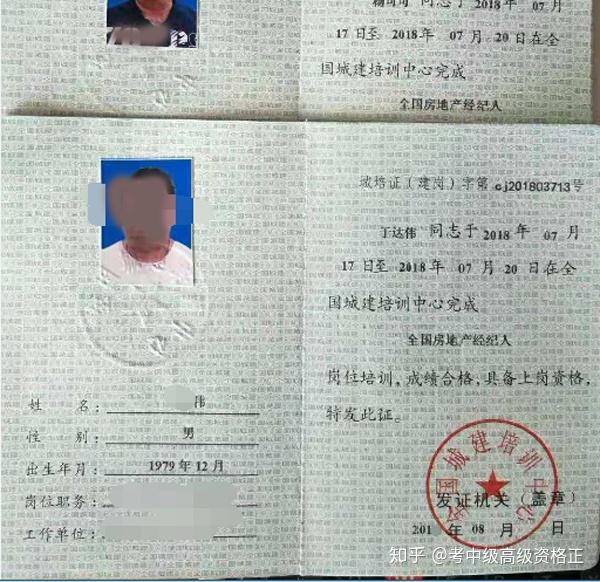 同志于2018年 07
17日至2018年 07月20日在全
国城建培训中心完成
全国房地产经纪人
城培证（建岗）字第cj201803713号
丁达伟 同志于2018年 07月
17日至2018年 07月20日在全
国城建培训中心完成
全国房地产经纪人
岗位培训，成绩合格，具备上岗资格，
特发此证。
姓 名： 伟
性 别： 男
出生年月： 1979年12月
岗位职务：
工作单位：
全国城建培训中心
发证机关（盖章）
201 年08月 日
知乎 @考中级高级资格正